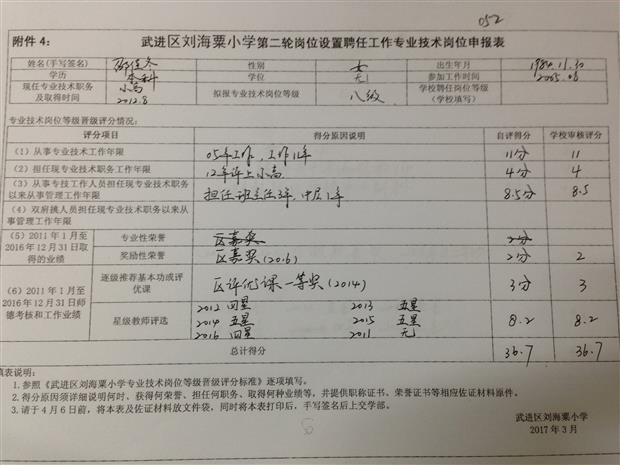 052
附件4： 武进区刘海粟小学第二轮岗位设置聘任工作专业技术岗位申报表
姓名(手写签名) 性别 女 出生年月 1984.11.30
学历 本科 学位 无 参加工作时间 2005.08
现任专业技术职务及取得时间 小高 2012.8 拟报专业技术岗位等级 八级 学校聘任岗位等级(学校填写)
专业技术岗位等级晋级评分情况：
评分项目 得分原因说明 自评得分 学校审核评分
(1)从事专业技术工作年限 05年工作，工作11年 11分 11
(2)担任现专业技术职务工作年限 12年评上小高 4分 4
(3)从事专技工作人员担任现专业技术职务以来从事管理工作年限 担任班主任3年，中层1年 8.5分 8.5
(4)双肩挑人员担任现专业技术职务以来从事管理工作年限
(5)2011年1月至2016年12月31日取得的业绩
专业性荣誉 区嘉奖 2分
奖励性荣誉 区嘉奖(2016) 2分 2
(6)2011年1月至2016年12月31日师德考核和工作业绩
逐级推荐基本功或评优课 区评优课一等奖(2014) 3分 3
星级教师评选 2012 四星 2013 五星
2014 五星 2015 五星 8.2 8.2
2016 四星 2011 无
总计得分 36.7 36.7
填表说明：
1.参照《武进区刘海粟小学专业技术岗位等级晋级评分标准》逐项填写。
2.得分原因须详细说明何时、获得何荣誉、担任何职务、取得何种业绩等，并提供职称证书、荣誉证书等相应佐证材料原件。
3.请于4月6日前，将本表及佐证材料放文件袋，同时将本表打印后，手写签名后上交学部。
武进区刘海粟小学
2017年3月